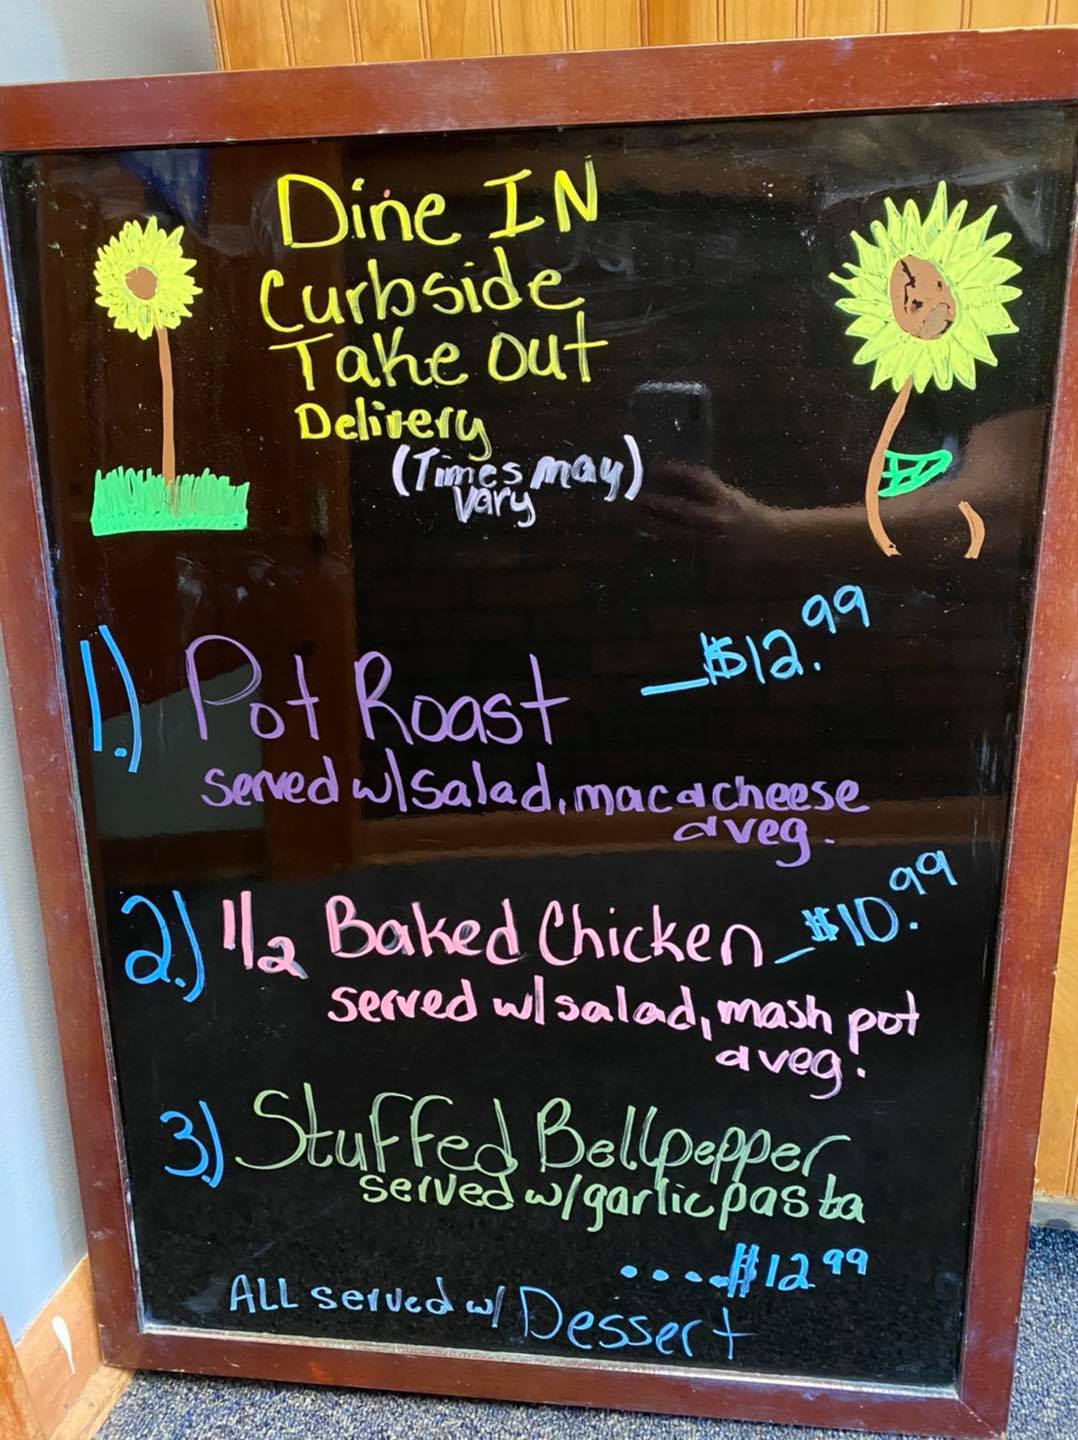 Dine IN
Curbside
Take out
Delivery
(Times may)
vary
1.) Pot Roast $12.99
served w/salad, mac & cheese
& veg.
2.) 1/2 Baked Chicken $10.99
served w/salad, mash pot
& veg.
3.) Stuffed Bellpepper
served w/garlic pasta
....$12.99
ALL served w/ Dessert